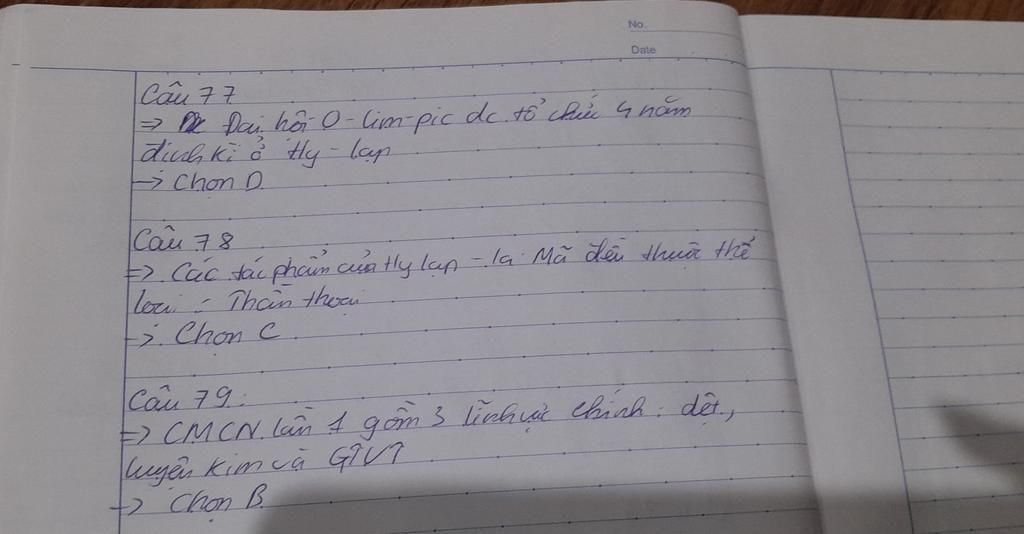 No.
Date
Câu 77
=> Đại hội O-lim-pic dc tổ chức 4 năm
định kì ở Hy-lạp
-> Chọn D
Câu 78
=> Các tác phẩm của Hy lạp - la Mã đều thuộc thể
loại : Thần thoại
-> Chọn C
Câu 79:
=> CMCN lần 1 gồm 3 lĩnh vực chính: dệt,
luyện kim và GTVT
-> Chọn B